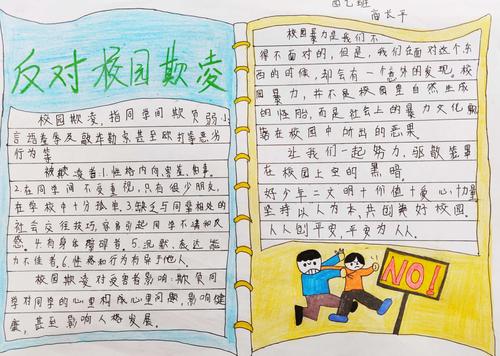 反对校园欺凌
校园欺凌,指同学间欺负弱小
言语羞辱及敲诈勒索甚至欧打等恶劣
行为等
被欺凌者:1.性格内向、害羞、怕事。
2.在同学间不受重视,只有很少朋友,
在学校中十分孤单。3.缺乏与同辈相处的
社会交往技巧,容易引起同学不满和反
感。4.有身体障碍者。5.沉默、表达能
力不佳者。6.性格和行为有异于他人。
校园欺凌对受害者影响:欺负同
学对同学的心里构成心里问题,影响健
康,甚至影响人格发展。
四乙班
商长平
校园暴力是我们不
得不面对的,但是,我们在面对这个东
西的时候,却会有一个意外的发现。校
园暴力,并不是校园里自然生成
的性胎,而是社会上的暴力文化
在校园中的恶果
让我们一起努力,驱散笼罩
在校园上空的黑暗
好少年=文明+价值+爱心+力量
坚持以人为本,共创美好校园。
人人创平安,平安为人人。
NO!